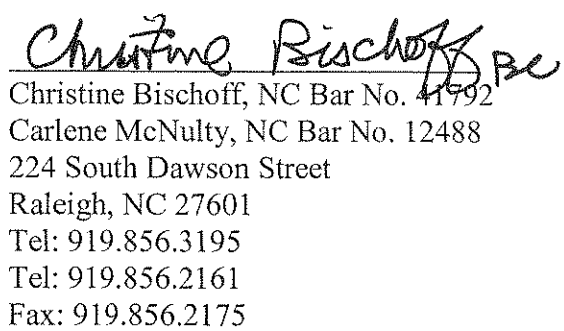 Christine Bischoff BC
Christine Bischoff, NC Bar No. 41792
Carlene McNulty, NC Bar No. 12488
224 South Dawson Street
Raleigh, NC 27601
Tel: 919.856.3195
Tel: 919.856.2161
Fax: 919.856.2175